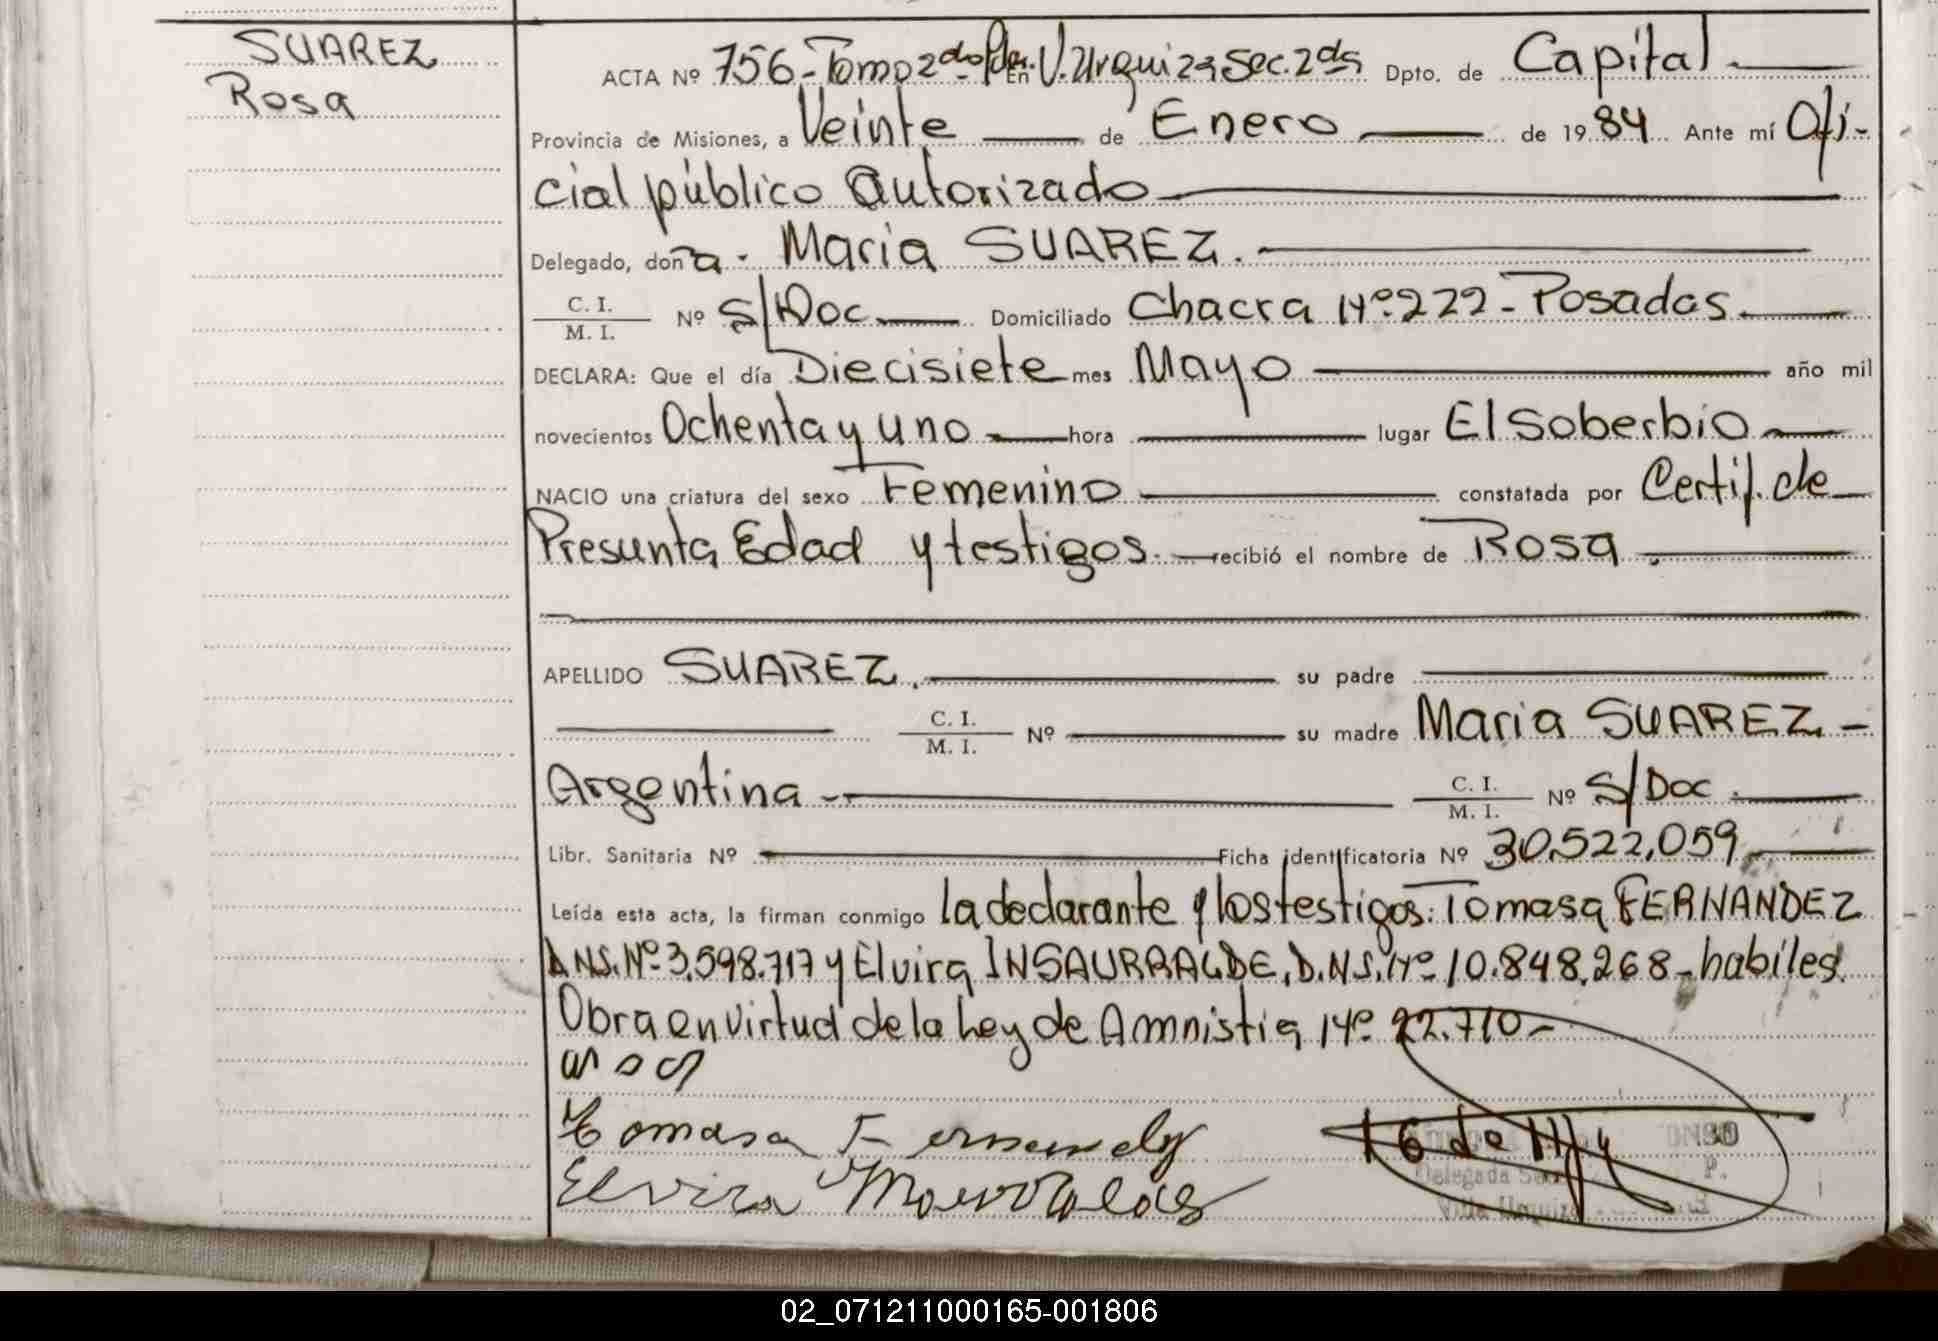 SUAREZ
Rosa
ACTA Nº 756-Tomo 2do En V. Urquiza Sec. 2da Dpto. de Capital
Provincia de Misiones, a Veinte de Enero de 1984 Ante mí Ofi-
cial público Autorizado
Delegado, doña. Maria SUAREZ.
C. I.
M. I. Nº S/Doc Domiciliado Chacra Nº 222 - Posadas
DECLARA: Que el día Diecisiete mes Mayo año mil
novecientos Ochenta y uno hora lugar El Soberbio
NACIO una criatura del sexo Femenino constatada por Certif. de
Presunta Edad y testigos. recibió el nombre de Rosa.
APELLIDO SUAREZ. su padre
C. I.
M. I. Nº su madre Maria SUAREZ -
Argentina - C. I.
M. I. Nº S/Doc.
Libr. Sanitaria Nº Ficha identificatoria Nº 30.522.059
Leída esta acta, la firman conmigo la declarante y los testigos: Tomasa FERNANDEZ
D.N.S. Nº 3.598.717 y Elvira INSAURRALDE, D.N.S. Nº 10.848.268 - habiles
Obra en virtud de la Ley de Amnistia Nº 22.710-
Tomasa Fernandez
Elvira
Delegada
Villa Urquiza
02_071211000165-001806